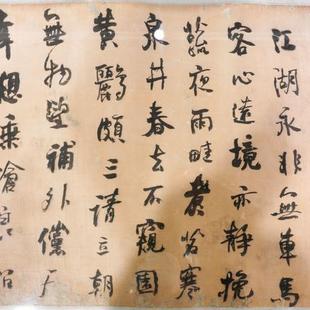 江湖永非無車馬
客心遠境亦靜挽
蔬夜雨畦煮茗寒
泉井春去不窺園
黄鸝頗三請立朝
無物望補外儻天
幸想乘滄